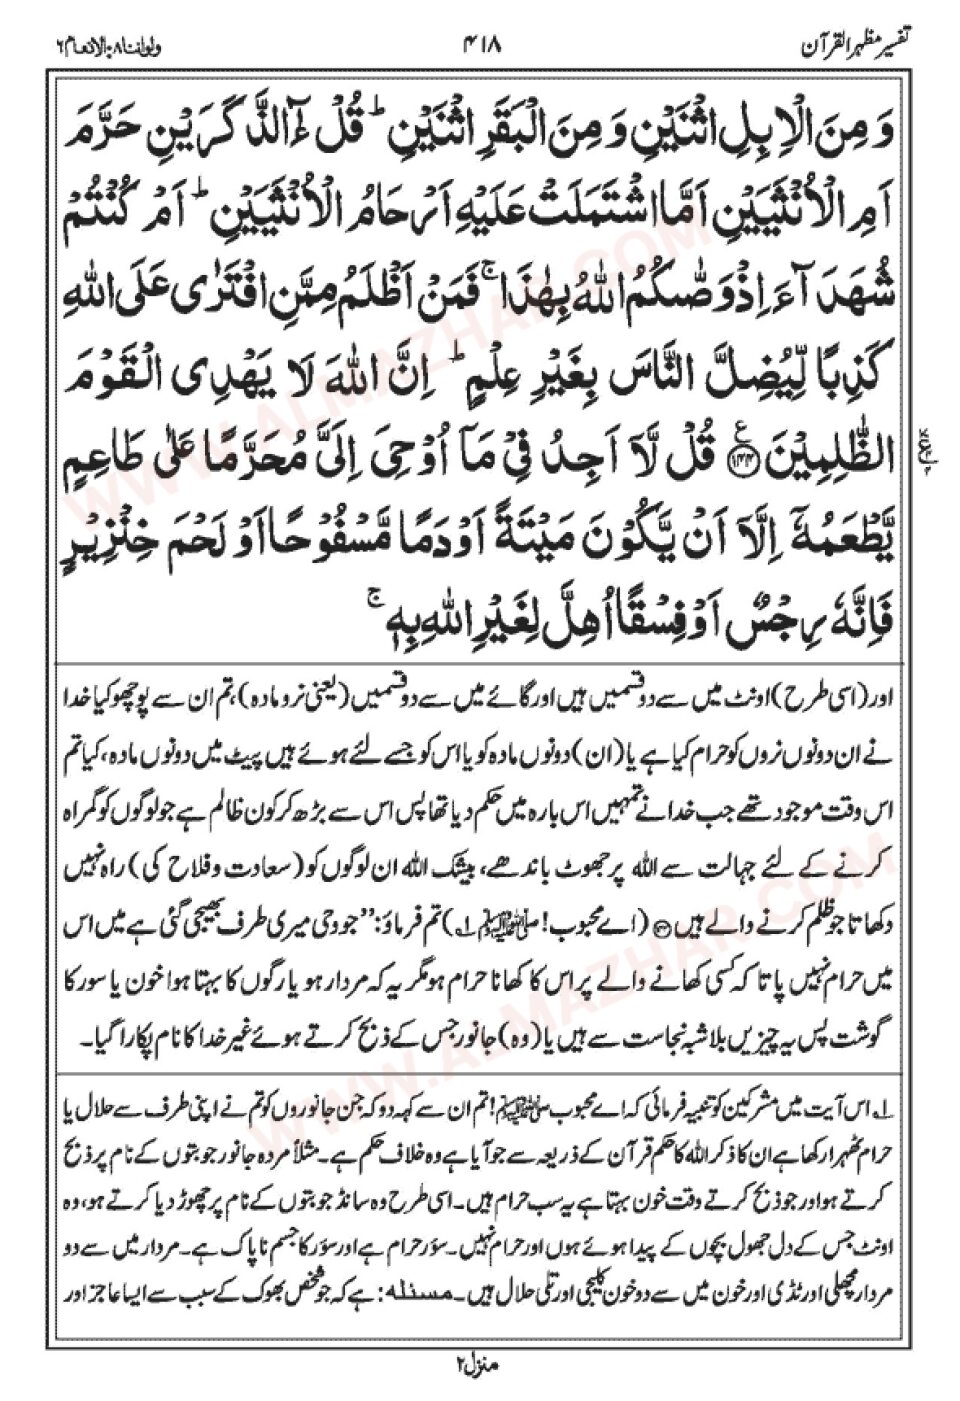 تفسیر مظہر القرآن
۴۱۸
ولو اننا ۸: الانعام ۶
وَمِنَ الْاِبِلِ اثْنَيْنِ وَمِنَ الْبَقَرِ اثْنَيْنِ ؕ قُلْ ءٰٓالذَّكَرَيْنِ حَرَّمَ
اَمِ الْاُنْثَيَيْنِ اَمَّا اشْتَمَلَتْ عَلَيْهِ اَرْحَامُ الْاُنْثَيَيْنِ ؕ اَمْ كُنْتُمْ
شُهَدَآءَ اِذْ وَصّٰىكُمُ اللّٰهُ بِهٰذَا ۚ فَمَنْ اَظْلَمُ مِمَّنِ افْتَرٰى عَلَى اللّٰهِ
كَذِبًا لِّيُضِلَّ النَّاسَ بِغَيْرِ عِلْمٍ ؕ اِنَّ اللّٰهَ لَا يَهْدِى الْقَوْمَ
الظّٰلِمِيْنَ ﴿۱۴۴﴾ قُلْ لَّاۤ اَجِدُ فِيْ مَاۤ اُوْحِيَ اِلَيَّ مُحَرَّمًا عَلٰى طَاعِمٍ
يَّطْعَمُهٗۤ اِلَّاۤ اَنْ يَّكُوْنَ مَيْتَةً اَوْ دَمًا مَّسْفُوْحًا اَوْ لَحْمَ خِنْزِيْرٍ
فَاِنَّهٗ رِجْسٌ اَوْ فِسْقًا اُهِلَّ لِغَيْرِ اللّٰهِ بِهٖ ۚ
اور (اسی طرح) اونٹ میں سے دو قسمیں ہیں اور گائے میں سے دو قسمیں (یعنی نر و مادہ)، تم ان سے پوچھو کیا خدا
نے ان دونوں نروں کو حرام کیا ہے یا (ان) دونوں مادہ کو یا اس کو جسے لئے ہوئے ہیں پیٹ میں دونوں مادہ، کیا تم
اس وقت موجود تھے جب خدا نے تمہیں اس بارہ میں حکم دیا تھا پس اس سے بڑھ کر کون ظالم ہے جو لوگوں کو گمراہ
کرنے کے لئے جہالت سے اللہ پر جھوٹ باندھے، بیشک اللہ ان لوگوں کو (سعادت و فلاح کی) راہ نہیں
دکھاتا جو ظلم کرنے والے ہیں (اے محبوب! ﷺ ۱؎) تم فرماؤ: ”جو وحی میری طرف بھیجی گئی ہے میں اس
میں حرام نہیں پاتا کہ کسی کھانے والے پر اس کا کھانا حرام ہو مگر یہ کہ مردار ہو یا رگوں کا بہتا ہوا خون یا سور کا
گوشت پس یہ چیزیں بلاشبہ نجاست سے ہیں یا (وہ) جانور جس کے ذبح کرتے ہوئے غیر خدا کا نام پکارا گیا۔
۱؎ اس آیت میں مشرکین کو تنبیہ فرمائی کہ اے محبوب ﷺ! تم ان سے کہہ دو کہ جن جانوروں کو تم نے اپنی طرف سے حلال یا
حرام ٹھہرا رکھا ہے ان کا ذکر اللہ کا حکم قرآن کے ذریعہ سے جو آیا ہے وہ خلاف حکم ہے۔ مثلاً مردہ جانور جو بتوں کے نام پر ذبح
کرتے ہو اور جو ذبح کرتے وقت خون بہتا ہے یہ سب حرام ہیں۔ اسی طرح وہ سانڈ جو بتوں کے نام پر چھوڑ دیا کرتے ہو، وہ
اونٹ جس کے دل جھول بچوں کے پیدا ہوئے ہوں اور حرام نہیں۔ سؤر حرام ہے اور سؤر کا جسم ناپاک ہے۔ مردار میں سے دو
مردار مچھلی اور ٹڈی اور خون میں سے دو خون کلیجی اور تلی حلال ہیں۔ مسئلہ: ہے کہ جو شخص بھوک کے سبب سے ایسا عاجز اور
منزل ۲
WWW.ALMAZHAR.COM
WWW.ALMAZHAR.COM